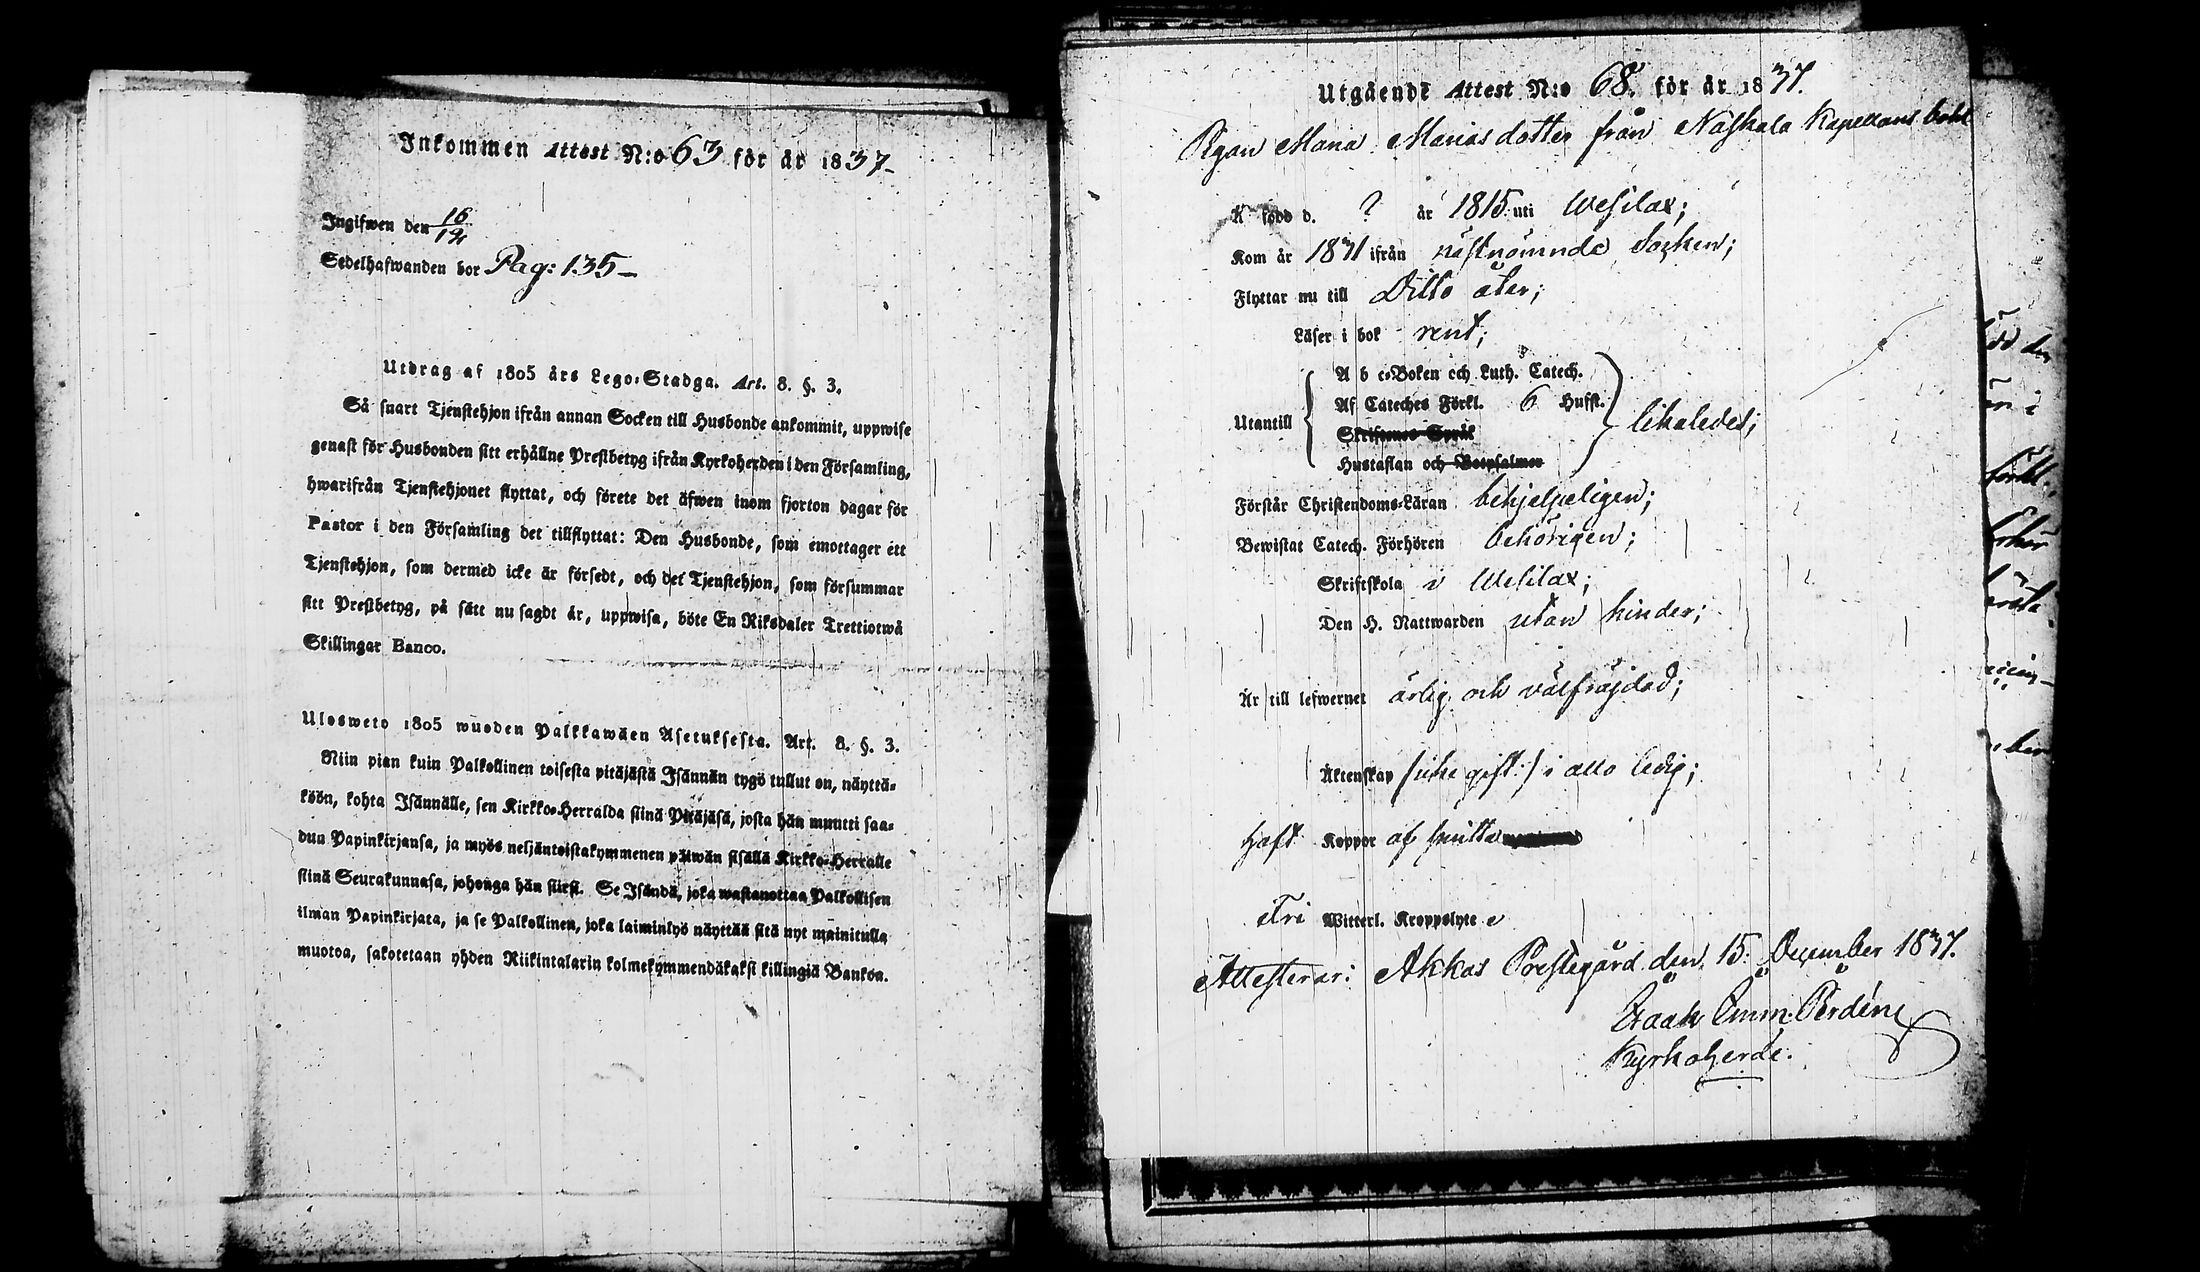 Inkommen Attest N:o 63 för år 1837-
Ingifwen den 16/12
Sedelhafwanden bor Pag: 135-
Utdrag af 1805 års Lego-Stadga. Art. 8. §. 3.
Så snart Tjenstehjon ifrån annan Socken till Husbonde ankommit, uppwise
genast för Husbonden sitt erhållne Prestbetyg ifrån Kyrkoherden i den Församling,
hwarifrån Tjenstehjonet flyttat, och förete det äfwen inom fjorton dagar för
Pastor i den Församling det tillflyttat: Den Husbonde, som emottager ett
Tjenstehjon, som dermed icke är försedt, och det Tjenstehjon, som försummar
sitt Prestbetyg, på sätt nu sagdt är, uppwisa, böte En Riksdaler Trettiotwå
Skillingar Banco.
Ulosweto 1805 wuoden Palkkawäen Asetuksesta. Art. 8. §. 3.
Niin pian kuin Palkollinen toisesta pitäjästä Isännän tygö tullut on, näyttä-
köön, kohta Isännälle, sen Kirkko-Herralda siinä Pitäjäsä, josta hän muutti saa-
dun Papinkirjansa, ja myös neljäntoistakymmenen päiwän sisällä Kirkko-Herralle
siinä Seurakunnasa, johonga hän siirsi. Se Isändä, joka wastanottaa Palkollisen
ilman Papinkirjata, ja se Palkollinen, joka laiminlyö näyttää sitä nyt mainitulla
muotoa, sakotetaan yhden Riikintalarin kolmekymmendäkaksi killingiä Bankoa.
Utgående Attest N:o 68. för år 1837.
Pigan Maria Mariasdotter från Naskala Kapellans bohl
Ä född d. ? år 1815 uti Wesilax;
Kom år 1831 ifrån nästnämnde Socken;
Flyttar nu till Ditto åter;
Läser i bok rent;
A b c-Boken och Luth. Catech.
Af Cateches Förkl. 6 Hufst.
Utantill Skriftenes Språk likaledes;
Hustaflan och Botpsalmer
Förstår Christendoms-Läran behjelpeligen;
Bewistat Catech. Förhören behörigen;
Skriftskola i Wesilax;
Den H. Nattwarden utan hinder;
Är till lefwernet ärlig och välfräjdad;
Äktenskap /:icke gift:/ i allo ledig;
Haft Koppor af smitta
Fri Witterl. Kroppslyte
Attesterar: Akkas Prestegård den 15. December 1837.
Isaak Emm: Perdén
Kyrkoherde.